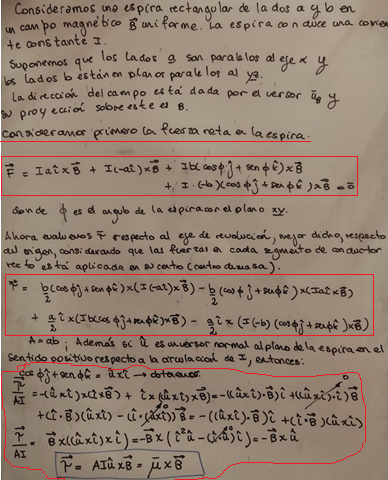 Consideramos una espira rectangular de lados a y b en
un campo magnético B⃗ uniforme. La espira conduce una corrien
te constante I.
Suponemos que los lados a son paralelos al eje x y
los lados b están en planos paralelos al yz.
La dirección del campo está dada por el versor û_B y
su proyección sobre este es B.
Consideramos primero la fuerza neta en la espira.
F⃗ = Iaî×B⃗ + I(-aî)×B⃗ + Ib(cosϕĵ+senϕk̂)×B⃗
+ I·(-b)(cosϕĵ+senϕk̂)×B⃗ = 0⃗
donde ϕ es el angulo de la espira con el plano xy.
Ahora evaluemos τ⃗ respecto al eje de revolución, mejor dicho, respecto
del origen, considerando que las fuerzas en cada segmento de conductor
recto está aplicada en su centro (centro de masa).
τ⃗ = b/2 (cosϕĵ+senϕk̂)×(I(-aî)×B⃗) - b/2 (cosϕĵ+senϕk̂)×(Iaî×B⃗)
+ a/2 î×(Ib(cosϕĵ+senϕk̂)×B⃗) - a/2 î×(I(-b)(cosϕĵ+senϕk̂)×B⃗)
A=ab; Además si û es un versor normal al plano de la espira en el
sentido positivo respecto a la circulación de I, entonces:
cosϕĵ+senϕk̂ = û×î →
τ⃗/AI = -(û×î)×(î×B⃗) + î×(û×î)×B⃗ = -((û×î)·B⃗)î+((û×î)·î)B⃗ 0
+(î·B⃗)(û×î) - (î·(û×î))B⃗ 0 = -((û×î)·B⃗)î+(î·B⃗)(û×î)
τ⃗/AI = B⃗×((û×î)×î) = -B⃗×(î²û-(î·û)î) 0 = -B⃗×û
τ⃗ = AIû×B⃗ = μ⃗×B⃗